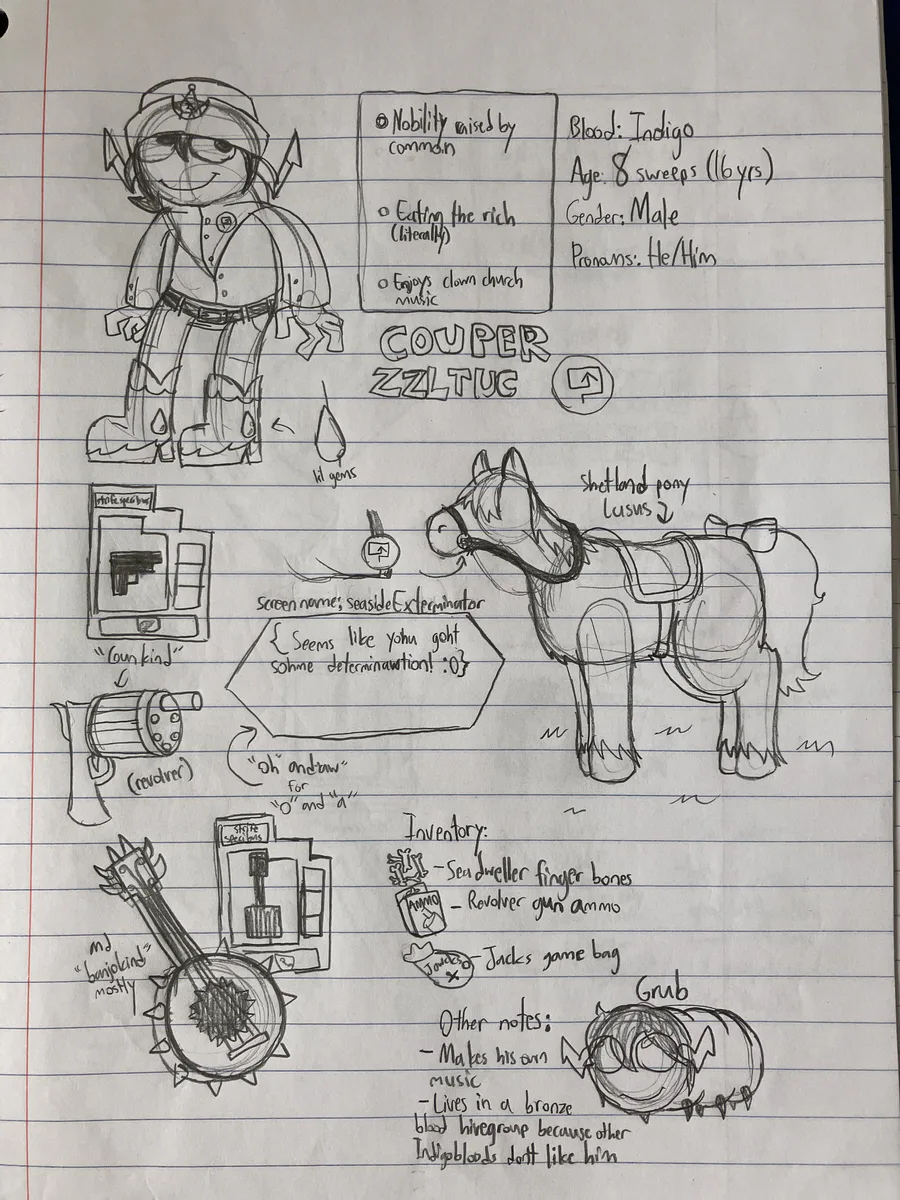 Nobility raised by
common
Eating the rich
(literally)
Enjoys clown church
music
Blood: Indigo
Age: 8 sweeps (16 yrs)
Gender: Male
Pronouns: He/Him
COUPER
ZZLTUC
lil gems
Shetland pony
Lusus
strife specibus
"Gunkind"
(revolver)
screen name: seasideExterminator
{ Seems like yohu goht
sohme determinawtion! :0}
"oh" and "aw"
for
"o" and "a"
strife
specibus
and
"banjokind"
mostly
Inventory:
- Seadweller finger bones
AMMO
- Revolver gun ammo
Jacks
- Jacks game bag
Grub
Other notes:
- Makes his own
music
- Lives in a bronze
blood hivegroup because other
Indigobloods don't like him